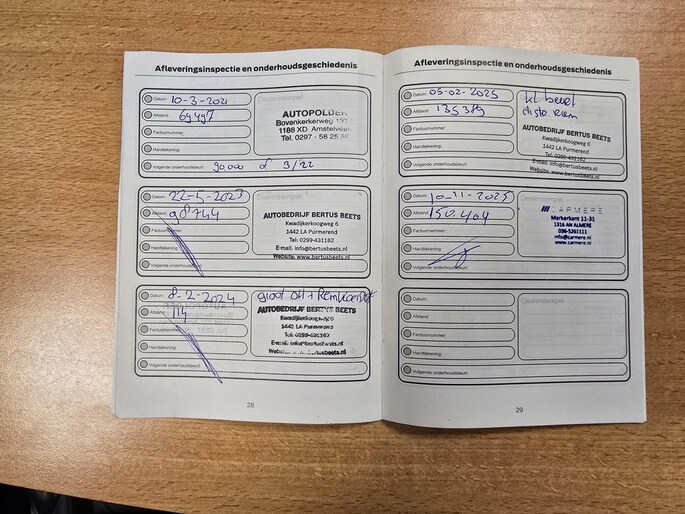 Afleveringsinspectie en onderhoudsgeschiedenis
Datum: 10-3-2021
Afstand: 69497
Factuurnummer:
Handtekening:
Volgende onderhoudsbeurt: 90000 of 3/22
Dealerstempel
AUTOPOLDER
Bovenkerkerweg
1188 XD Amstelveen
Tel. 0297 - 58 25
Datum: 22-5-2023
Afstand: 98744
Factuurnummer:
Handtekening:
Volgende onderhoudsbeurt:
Dealerstempel
AUTOBEDRIJF BERTUS BEETS
Kwadijkerkoogweg 6
1442 LA Purmerend
Tel: 0299-431162
E-mail: info@bertusbeets.nl
Website: www.bertusbeets.nl
Datum: 8-2-2024
Afstand: 114
Factuurnummer:
Handtekening:
Volgende onderhoudsbeurt:
groot ond + Remvloeistof
AUTOBEDRIJF BERTUS BEETS
Kwadijkerkoogweg 6
1442 LA Purmerend
Tel: 0299-431162
E-mail: info@bertusbeets.nl
Website: www.bertusbeets.nl
28
Afleveringsinspectie en onderhoudsgeschiedenis
Datum: 05-02-2025
Afstand: 135389
Factuurnummer:
Handtekening:
Volgende onderhoudsbeurt:
kl beurt
distr. riem
AUTOBEDRIJF BERTUS BEETS
Kwadijkerkoogweg 6
1442 LA Purmerend
Tel: 0299-431162
E-mail: info@bertusbeets.nl
Website: www.bertusbeets.nl
Datum: 10-11-2025
Afstand: 150.404
Factuurnummer:
Handtekening:
Volgende onderhoudsbeurt:
Dealerstempel
CARMERE
Markerkant 11-31
1316 AN ALMERE
036-5261111
info@carmere.nl
www.carmere.nl
Datum:
Afstand:
Factuurnummer:
Handtekening:
Volgende onderhoudsbeurt:
Dealerstempel
29